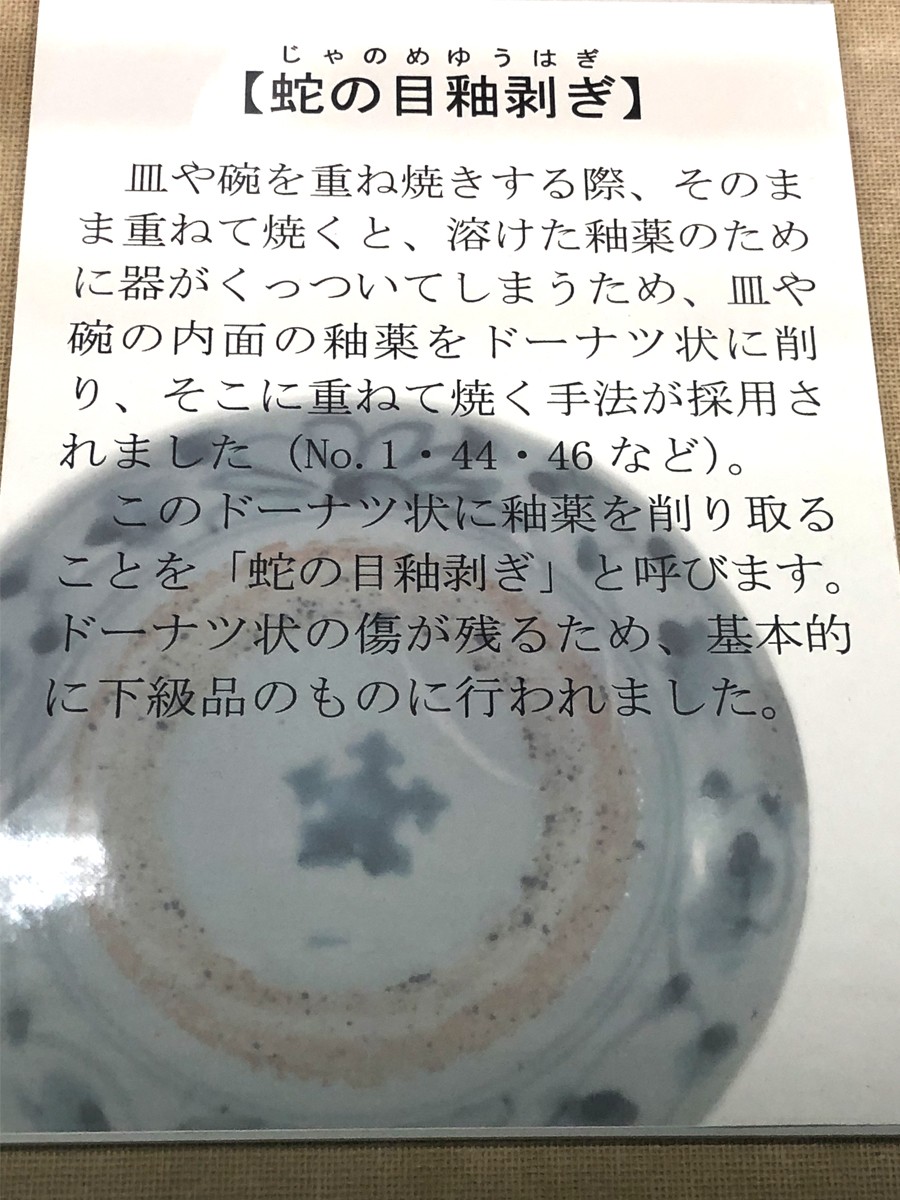 じゃのめゆうはぎ
【蛇の目釉剥ぎ】
皿や碗を重ね焼きする際、そのま
ま重ねて焼くと、溶けた釉薬のため
に器がくっついてしまうため、皿や
碗の内面の釉薬をドーナツ状に削
り、そこに重ねて焼く手法が採用さ
れました（No.1・44・46など）。
このドーナツ状に釉薬を削り取る
ことを「蛇の目釉剥ぎ」と呼びます。
ドーナツ状の傷が残るため、基本的
に下級品のものに行われました。